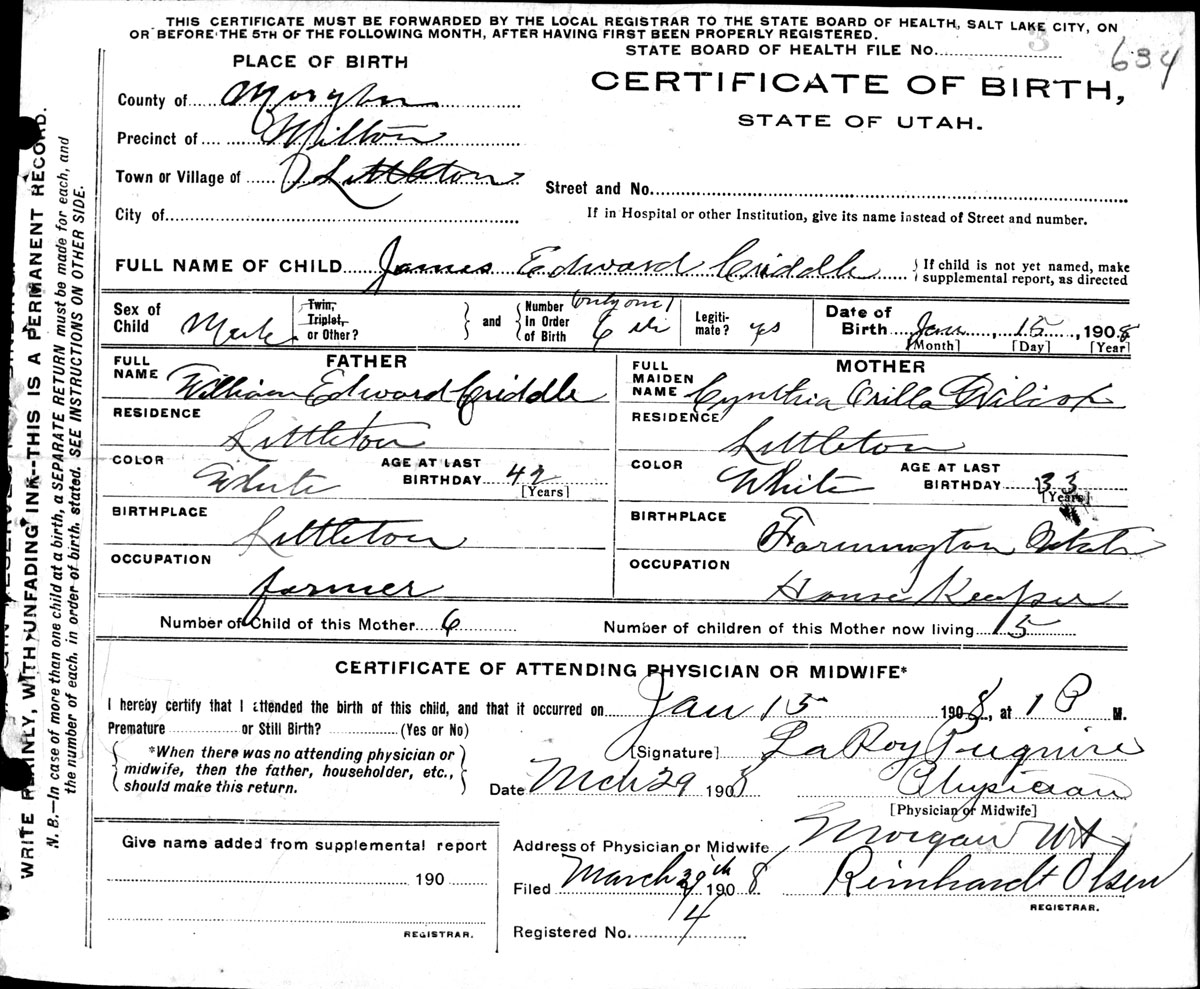 THIS CERTIFICATE MUST BE FORWARDED BY THE LOCAL REGISTRAR TO THE STATE BOARD OF HEALTH, SALT LAKE CITY, ON
OR BEFORE THE 5TH OF THE FOLLOWING MONTH, AFTER HAVING FIRST BEEN PROPERLY REGISTERED.
STATE BOARD OF HEALTH FILE No. 3 634
PLACE OF BIRTH
CERTIFICATE OF BIRTH,
STATE OF UTAH.
County of Morgan
Precinct of Milton
Town or Village of Littleton
Street and No.
City of
If in Hospital or other Institution, give its name instead of Street and number.
FULL NAME OF CHILD James Edward Criddle
If child is not yet named, make
supplemental report, as directed
Sex of Child Male
Twin, Triplet, or Other?
and
Number in Order of Birth (only one) 6 th
Legiti-mate? yes
Date of Birth Jan 15, 1908
[Month] [Day] [Year]
FATHER
FULL NAME William Edward Criddle
RESIDENCE Littleton
COLOR White
AGE AT LAST BIRTHDAY 42
[Years]
BIRTHPLACE Littleton
OCCUPATION farmer
MOTHER
FULL MAIDEN NAME Cynthia Orilla Wilcox
RESIDENCE Littleton
COLOR White
AGE AT LAST BIRTHDAY 33
[Years]
BIRTHPLACE Farmington Utah
OCCUPATION House Keeper
Number of Child of this Mother 6
Number of children of this Mother now living 5
CERTIFICATE OF ATTENDING PHYSICIAN OR MIDWIFE*
I hereby certify that I attended the birth of this child, and that it occurred on Jan 15 1908, at 1 P M.
Premature or Still Birth? (Yes or No)
*When there was no attending physician or
midwife, then the father, householder, etc.,
should make this return.
[Signature] LaRoy Pugmire
Date Mch 29 1908
Physician
[Physician or Midwife]
Give name added from supplemental report
190
REGISTRAR.
Address of Physician or Midwife Morgan Ut
Filed March th 1908 Reinhardt Olsen
REGISTRAR.
Registered No. 4
WRITE PLAINLY, WITH UNFADING INK--THIS IS A PERMANENT RECORD.
N. B.—In case of more than one child at a birth, a SEPARATE RETURN must be made for each, and
the number of each, in order of birth, stated. SEE INSTRUCTIONS ON OTHER SIDE.